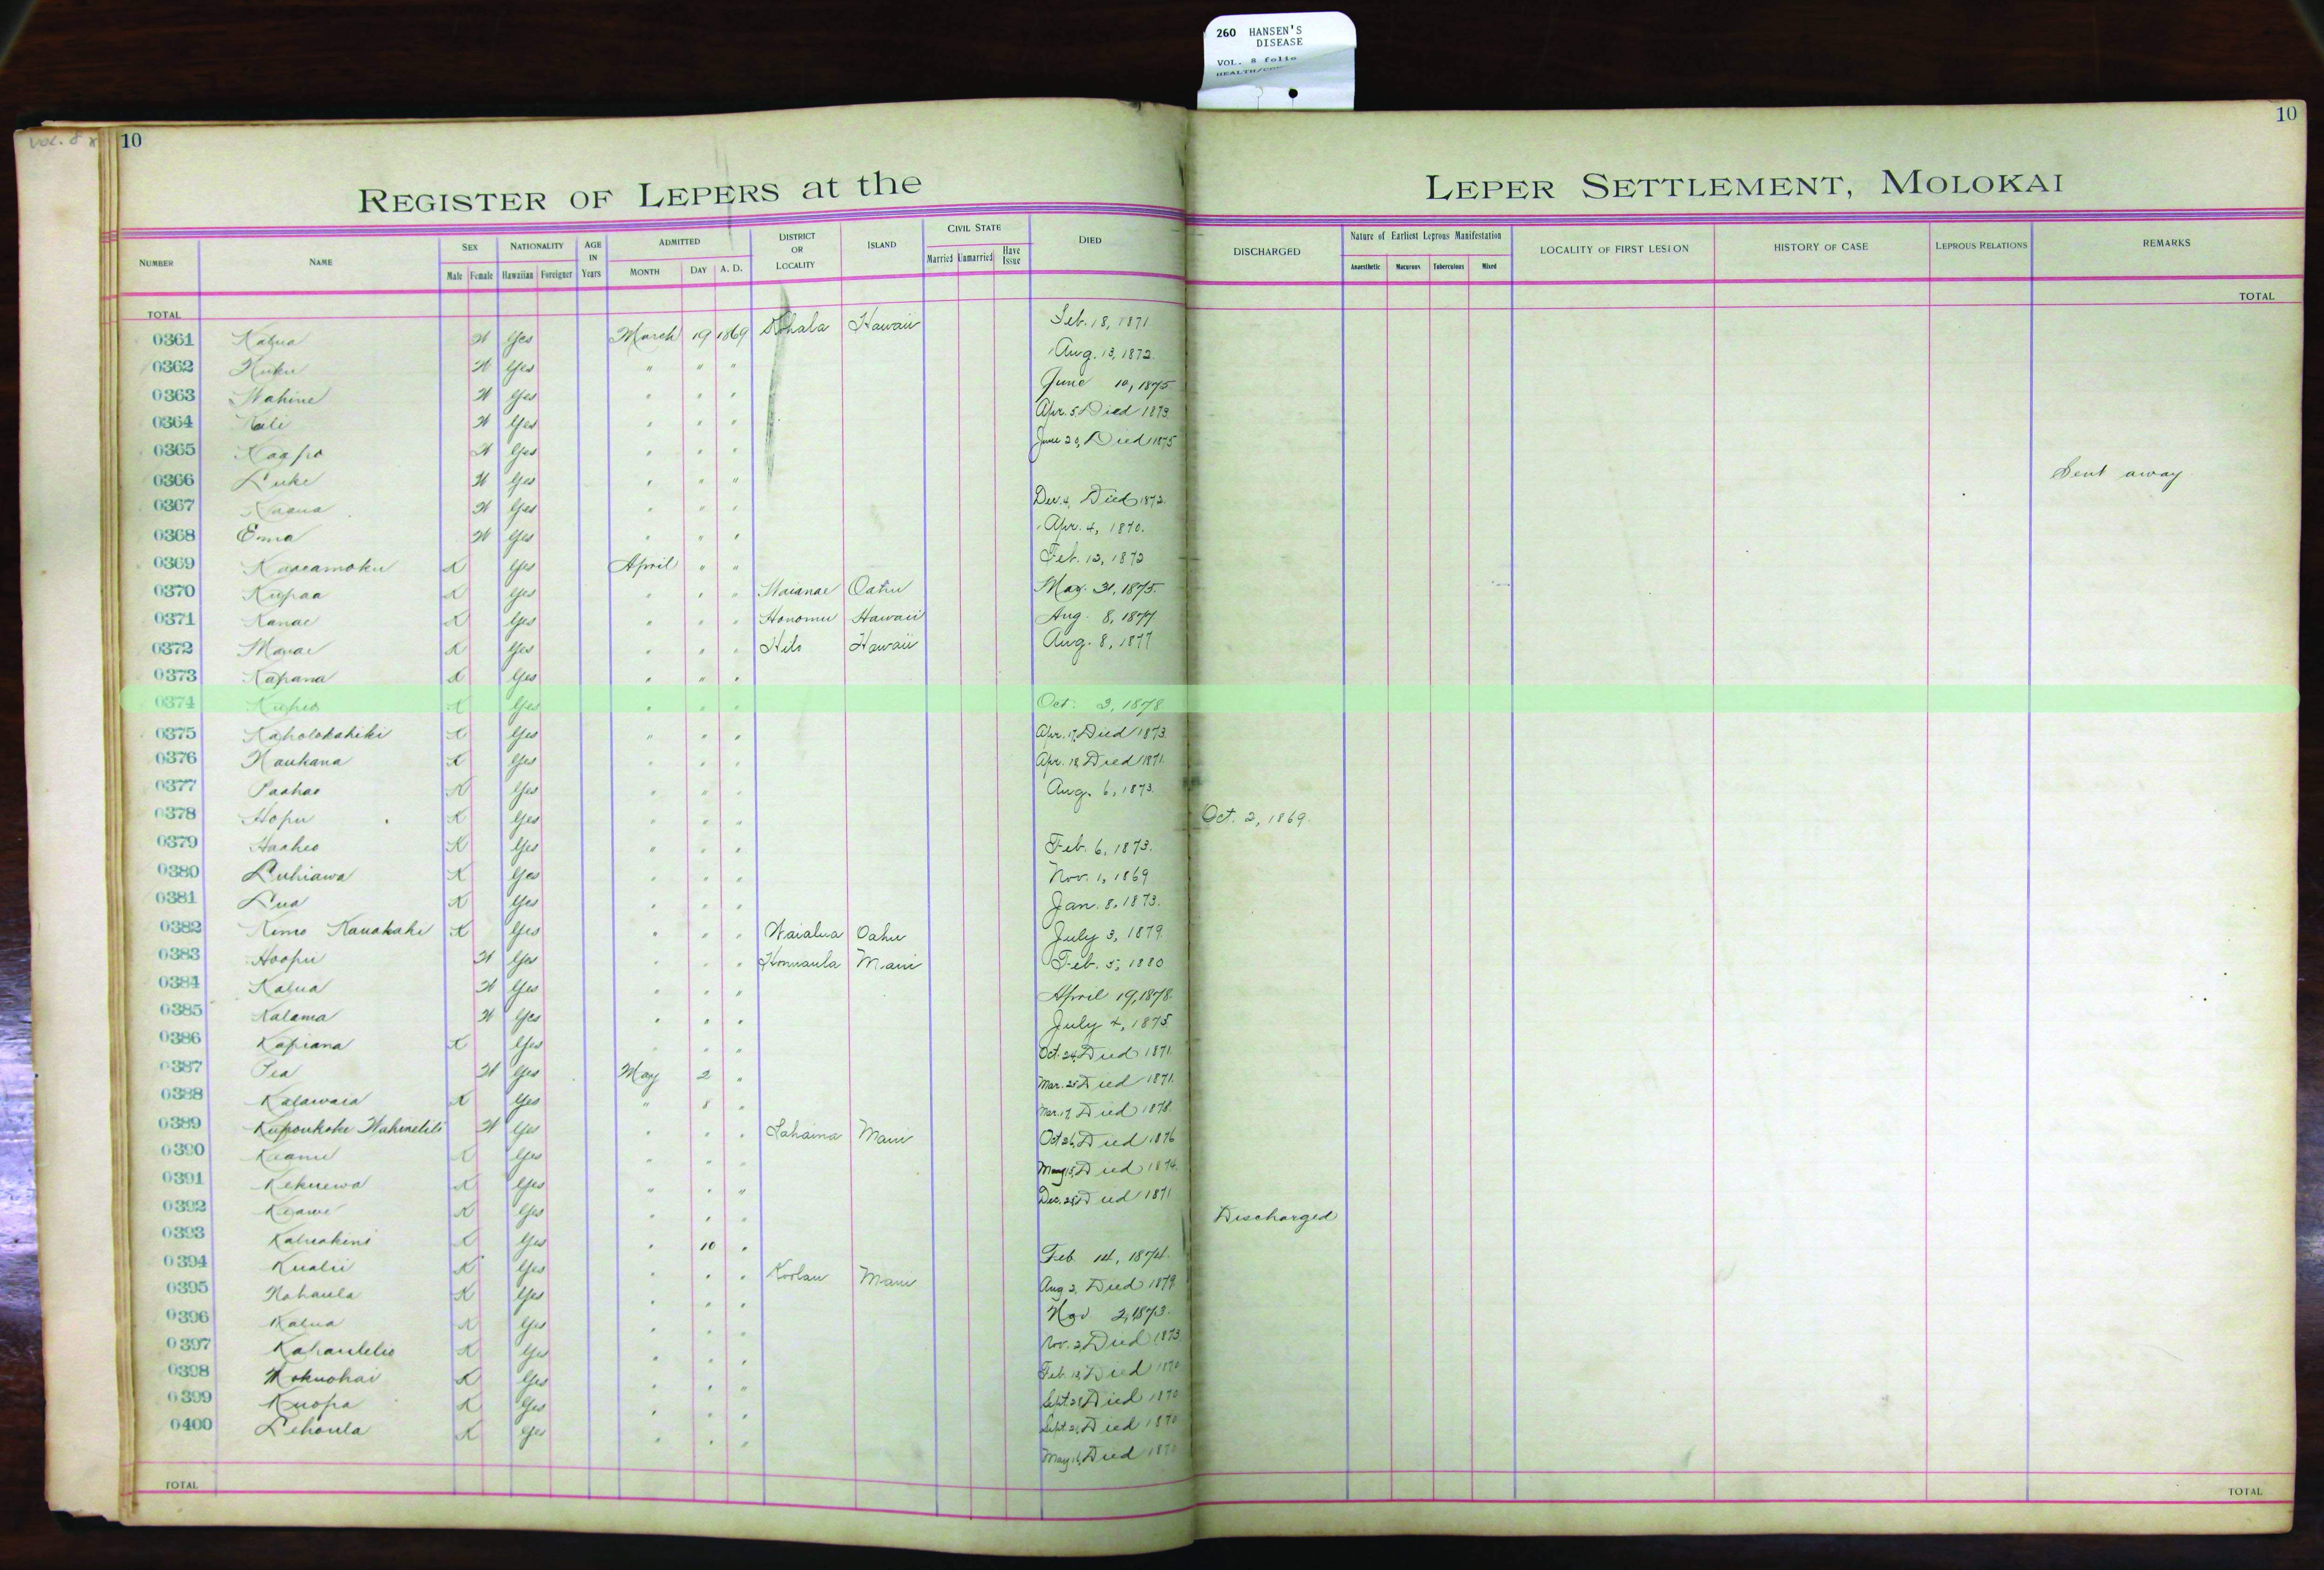 260 HANSEN'S
DISEASE
VOL. 8 folio
VOL. 8
10
10
REGISTER OF LEPERS at the LEPER SETTLEMENT, MOLOKAI
NUMBER NAME SEX Male Female NATIONALITY Hawaiian Foreigner AGE IN Years ADMITTED MONTH DAY A. D. DISTRICT OR LOCALITY ISLAND CIVIL STATE Married Unmarried Have Issue DIED DISCHARGED Nature of Earliest Leprous Manifestation Anaesthetic Macurous Tuberculous Mixed LOCALITY OF FIRST LESION HISTORY OF CASE LEPROUS RELATIONS REMARKS
TOTAL TOTAL
0361 Kalua W Yes March 19 1869 Kohala Hawaii Feb. 18, 1871
0362 W Yes " " " Aug. 13, 1872.
0363 Wahine W Yes " " " June 10, 1875
0364 W Yes " " " Apr. 5 Died 1873.
0365 Kaapo W Yes " " " June 20, Died 1875
0366 Luke W Yes " " " Sent away
0367 W Yes " " " Dec. 4, Died 1872.
0368 Emma W Yes " " " Apr. 4, 1870.
0369 Kaaeamoku K Yes April " " Feb. 12, 1872
0370 Kupaa K Yes " " " Waianae Oahu May. 31, 1875.
0371 Kanae K Yes " " " Honomu Hawaii Aug. 8, 1877
0372 K Yes " " " Hilo Hawaii Aug. 8, 1877
0373 Kapana K Yes " " "
0374 Kupeo K Yes " " " Oct. 3, 1878
0375 Kaholokahiki K Yes " " " Apr. 17, Died 1873.
0376 Naukana K Yes " " " Apr. 18 Died 1871.
0377 Paahao K Yes " " " Aug. 6, 1873.
0378 Hopu K Yes " " " Oct. 2, 1869.
0379 Haaheo K Yes " " " Feb. 6, 1873.
0380 Luhiawa K Yes " " " Nov. 1, 1869
0381 Lua K Yes " " " Jan. 8, 1873.
0382 Kimo Kauakahi K Yes " " " Waialua Oahu July 3, 1879
0383 Hoopii W Yes " " " Honuaula Maui Feb. 5, 1880
0384 Kalua W Yes " " " April 19, 1878.
0385 Kalama W Yes " " " July 4, 1875
0386 Kapiana K Yes " " " Oct. 24, Died 1871
0387 Pea W Yes May 2 " Mar. 25 Died 1871.
0388 Kalawaia K Yes " 8 " Mar. 17, Died 1878.
0389 W Yes " " " Lahaina Maui Oct 26, Died 1876
0390 Keanu K Yes " " " May 15, Died 1874.
0391 Kekuewa K Yes " " " Dec. 25, Died 1871
0392 Keawe K Yes " " " Discharged
0393 Kaluakini K Yes " 10 " Feb. 14, 1874.
0394 Kualii K Yes " " " Koolau Maui Aug 2, Died 1879.
0395 Nohaula K Yes " " " Nov 2, 1873.
0396 Kalua K Yes " " " Nov. 2, Died 1873
0397 Kahaulelio K Yes " " " Feb. 18, Died 1870
0398 Mokuohai K Yes " " " Sept. 28 Died 1870
0399 Kuopa K Yes " " " Sept. 21, Died 1870
0400 Lehoula K Yes " " " May 16, Died 1870
TOTAL TOTAL